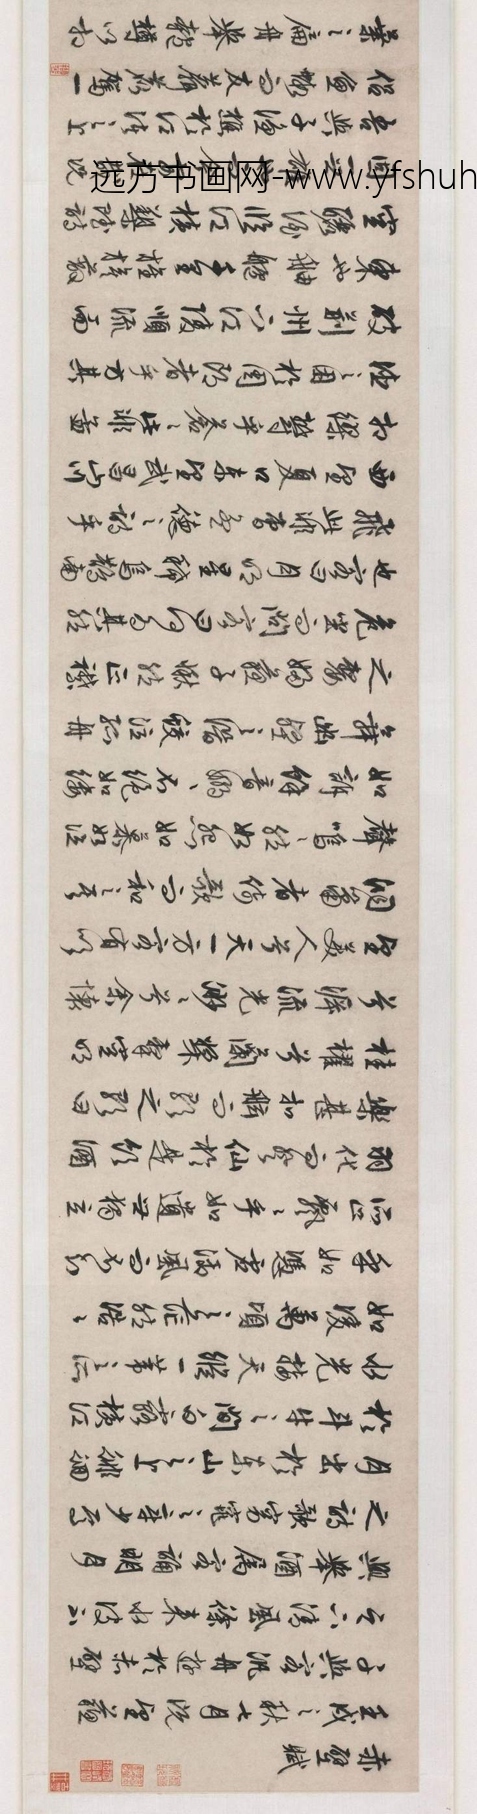 赤壁賦
壬戌之秋七月既望蘇
子與客泛舟遊於赤壁
之下清風徐來水波不
興舉酒屬客誦明月
之詩歌窈窕之章少焉
月出於東山之上徘徊
於斗牛之間白露橫江
水光接天縱一葦之所
如凌萬頃之茫然浩〻
乎如憑虛御風而不知
所止飄〻乎如遺世獨立
羽化而登仙於是飲酒
樂甚扣舷而歌之歌曰
桂櫂兮蘭槳擊空明
兮泝流光渺〻兮余懷
望美人兮天一方客有吹
洞簫者倚歌而和之其
聲嗚〻然如怨如慕如泣
如訴餘音嫋〻不絕如縷
舞幽壑之潛蛟泣孤舟
之嫠婦蘇子愀然正襟
危坐而問客曰何為其然
也客曰月明星稀烏鵲南
飛此非曹孟德之詩乎
西望夏口東望武昌山川
相繆鬱乎蒼〻此非孟
德之困於周郎者乎方其
破荊州下江陵順流而
東也舳艫千里旌旗蔽
空釃酒臨江橫槊賦詩
固一世之雄也而今安在哉況
吾與子漁樵於江渚之上
侶魚蝦而友麋鹿駕一
葉之扁舟舉匏樽以相
远方书画网-www.yfshuh